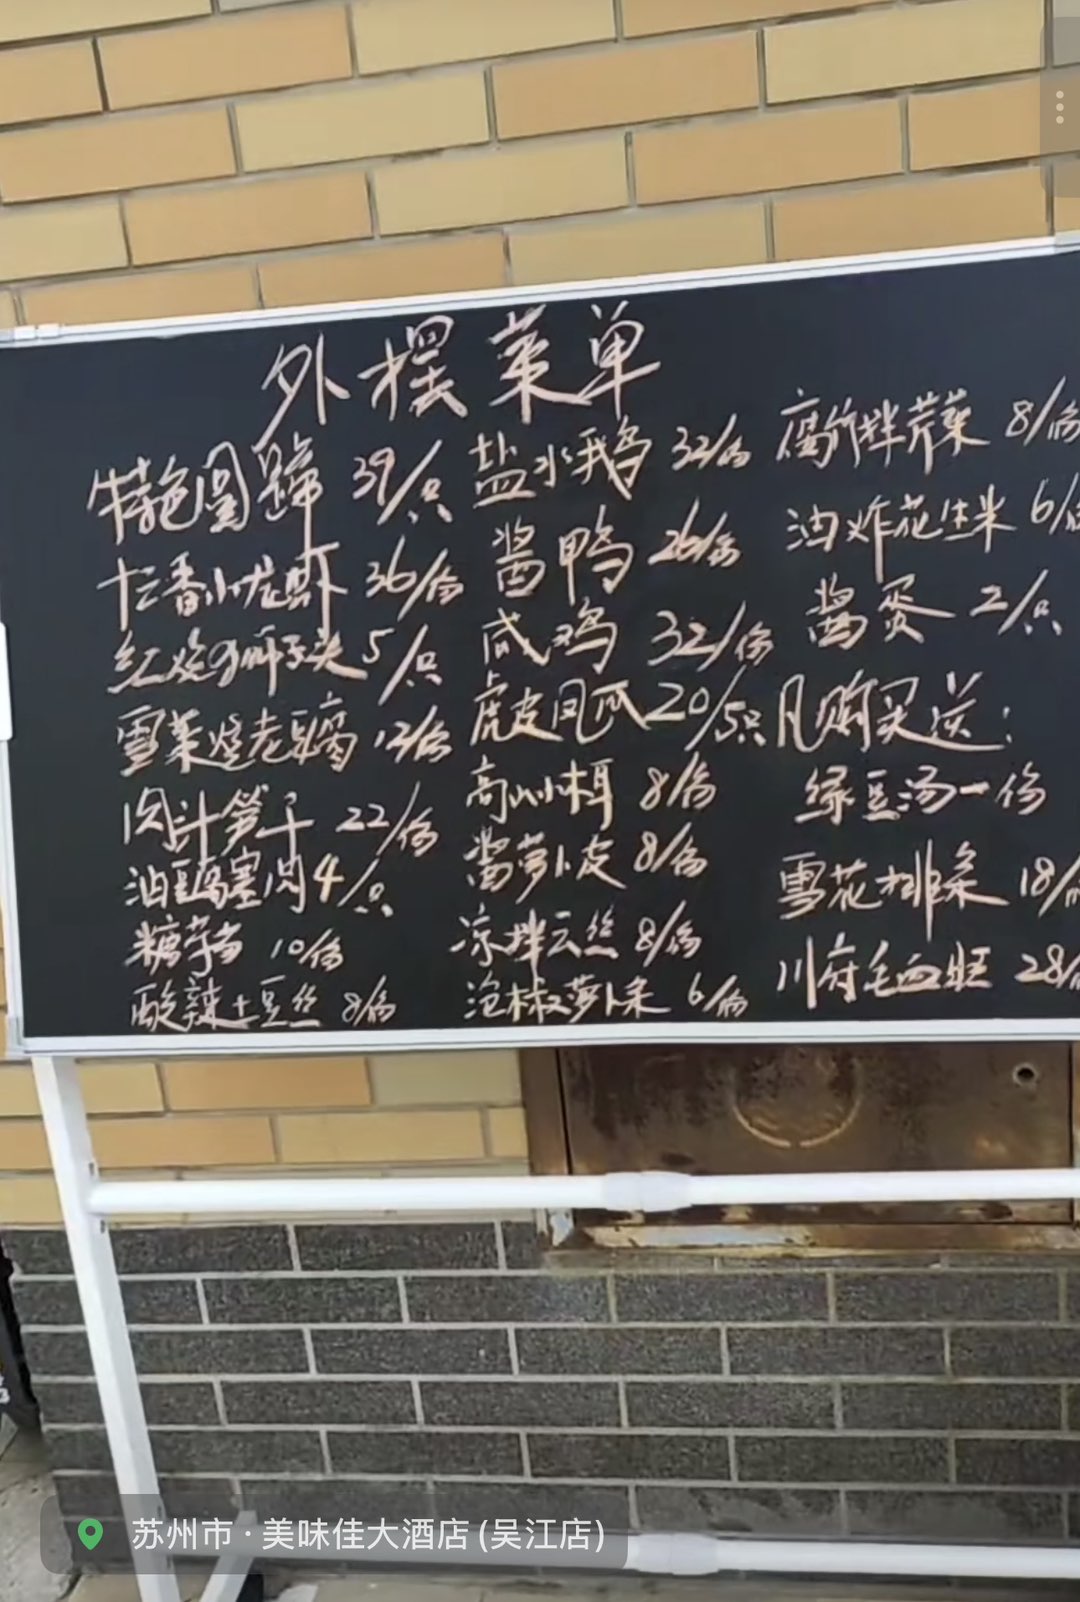 外摆菜单
特色圆蹄 39/只
十三香小龙虾 36/份
红烧狮子头 5/只
雪菜烧老豆腐 12/份
肉汁笋干 22/份
油豆腐塞肉 4/只
糖芋苗 10/份
酸辣土豆丝 8/份
盐水鹅 32/份
酱鸭 26/份
咸鸡 32/份
虎皮凤爪 20/5只
高山小木耳 8/份
酱萝卜皮 8/份
凉拌云丝 8/份
泡椒萝卜条 6/份
腐竹拌芹菜 8/份
油炸花生米 6/份
酱蛋 2/只
凡购买送:
绿豆汤一份
雪花排条 18/
川府毛血旺 28/
苏州市·美味佳大酒店(吴江店)